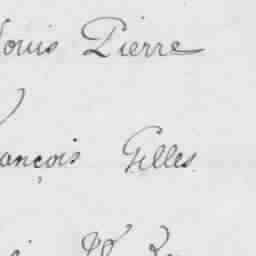 Louis Pierre
François Gilles